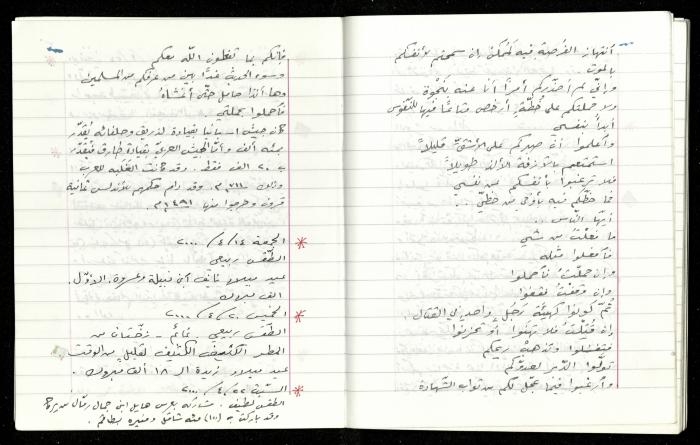 انتهاز الفُرصة فيه لَمُمكنٌ إن سمحتم لأنفسكم
بالموت.
وإنّي لم أُحذّركم أمراً أنا عنه بنَجْوَة
ولا حملتُكم على خُطّةٍ أرخصُ متاعاً فيها للنفوس
أبدأُ بنفسي
وأعلموا أن صبركم على الأشقّ قليلاً
استمتعتم بالأرفَه الألذ طويلاً
فلا ترغبوا بأنفسكم عن نفسي
فما حظّكم فيه بأوفى من حظّي..
أيها الناس..
ما فعلتُ من شيء
فأفعلوا مثله
وإن حملتُ فأحملوا
وإن وقفتُ فقفوا
ثُمّ كونوا كهيئة رَجُلٍ واحدٍ في القتال.
إن قُتلتُ فلا تهنوا أو تحزنوا
فتفشلوا وتذهب ريحكم
تولّوا الدُبر لعدوّكم
وأرغبوا فيما عجّل لكم من ثواب الشهادة
فإنكم بما تفعلون الله معكم
وسوء الحديث غداً بين من عرفكم من المسلمين
وها أنذا حامل حتّى أغشاهُ
فأحملوا بحملتي.
كان جيش اسبانيا بقيادة لذريق وحلفائه يُقدّر
بمئة ألف وأمّا الجيش العربيّ بقيادة طارق فيُقدّر
بـ ٢٠ الف فقط. وقد كانت الغَلبه للعرب
وذلك ٧١١م. وقد دام حكمهم للأندلس ثمانية
قرون وخرجوا منها ١٤٩١م.
الجمعة ٢٠٠٠/٤/١٤
الطّقس ربيعي
عيد ميلاد نائف أبن نبيلة الأوّل.
الف مبروك
الخميس ٢٠٠٠/٤/٢٠
الطّقس ربيعي. غائم - زخّتان من
المطر الكثيف لقليل من الوقت
عيد ميلاد زبدة الـ ١٨ ألف مبروك.
السّبت ٢٠٠٠/٤/٢٢
الطقس لطيف. شاركه بعرس هايل ابن جمال
وقد باركت بـ (١٠٠) مئة شاقل ومنيره